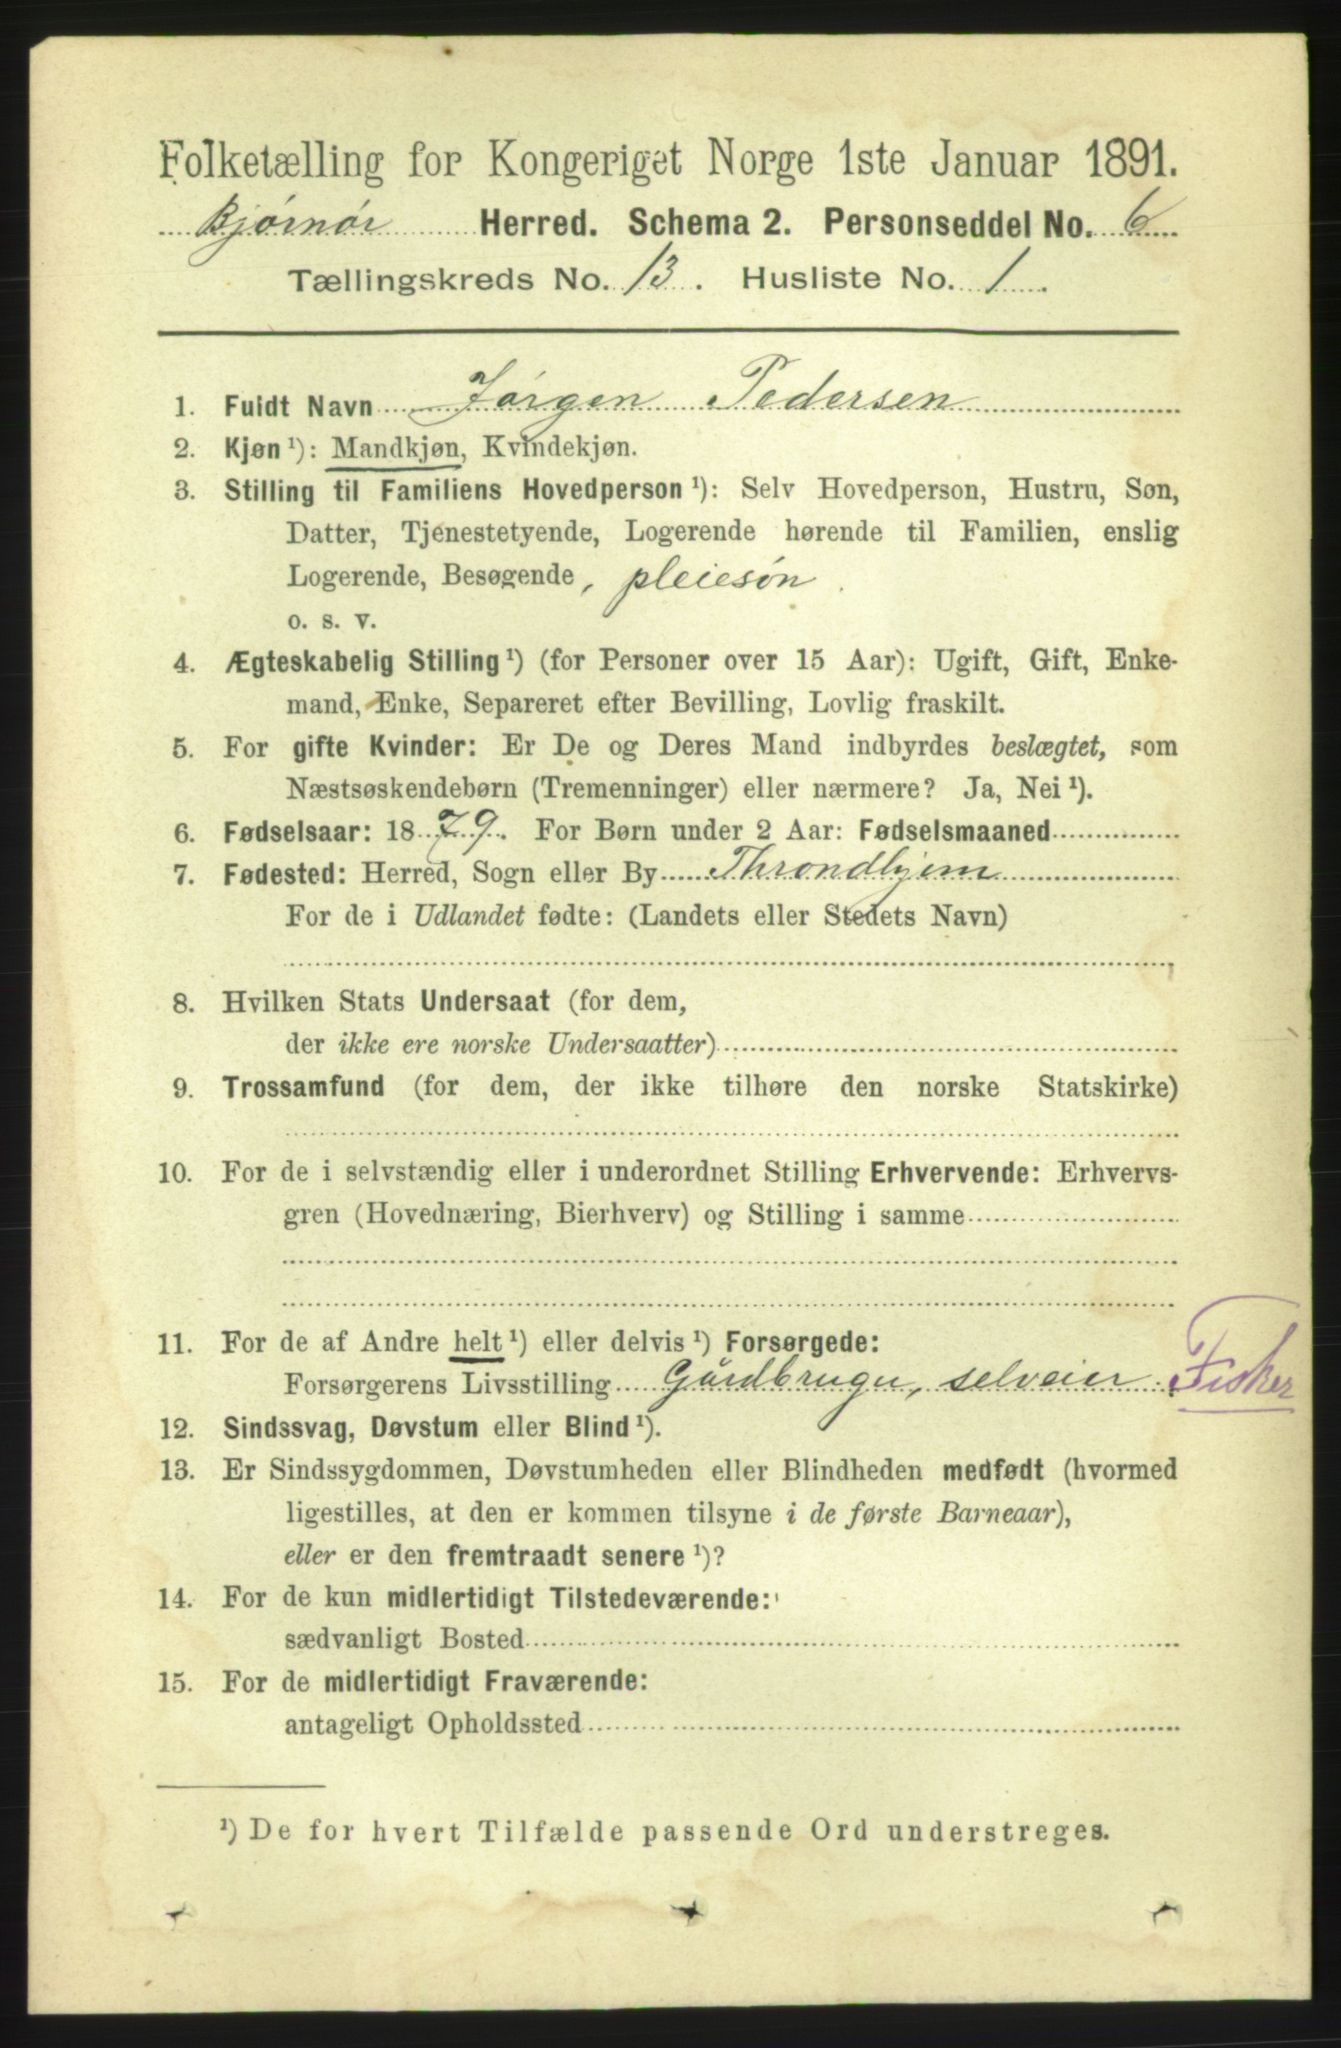 Folketælling for Kongeriget Norge 1ste Januar 1891.
Bjørnør Herred. Schema 2. Personseddel No. 6
Tællingskreds No. 13. Husliste No. 1.
1. Fuldt Navn Jørgen Pedersen
2. Kjøn ¹): Mandkjøn, Kvindekjøn.
3. Stilling til Familiens Hovedperson ¹): Selv Hovedperson, Hustru, Søn,
Datter, Tjenestetyende, Logerende hørende til Familien, enslig
Logerende, Besøgende, pleiesøn.
o. s. v.
4. Ægteskabelig Stilling ¹) (for Personer over 15 Aar): Ugift, Gift, Enke-
mand, Enke, Separeret efter Bevilling, Lovlig fraskilt.
5. For gifte Kvinder: Er De og Deres Mand indbyrdes beslægtet, som
Næstsøskendebørn (Tremenninger) eller nærmere? Ja, Nei ¹).
6. Fødselsaar: 1879. For Børn under 2 Aar: Fødselsmaaned
7. Fødested: Herred, Sogn eller By Throndhjem
For de i Udlandet fødte: (Landets eller Stedets Navn)
8. Hvilken Stats Undersaat (for dem,
der ikke ere norske Undersaatter)
9. Trossamfund (for dem, der ikke tilhøre den norske Statskirke)
10. For de i selvstændig eller i underordnet Stilling Erhvervende: Erhvervs-
gren (Hovednæring, Bierhverv) og Stilling i samme
11. For de af Andre helt ¹) eller delvis ¹) Forsørgede:
Forsørgerens Livsstilling Gårdbruger, selveier Fisker
12. Sindssvag, Døvstum eller Blind ¹).
13. Er Sindssygdommen, Døvstumheden eller Blindheden medfødt (hvormed
ligestilles, at den er kommen tilsyne i de første Barneaar),
eller er den fremtraadt senere ¹)?
14. For de kun midlertidigt Tilstedeværende:
sædvanligt Bosted
15. For de midlertidigt Fraværende:
antageligt Opholdssted
¹) De for hvert Tilfælde passende Ord understreges.